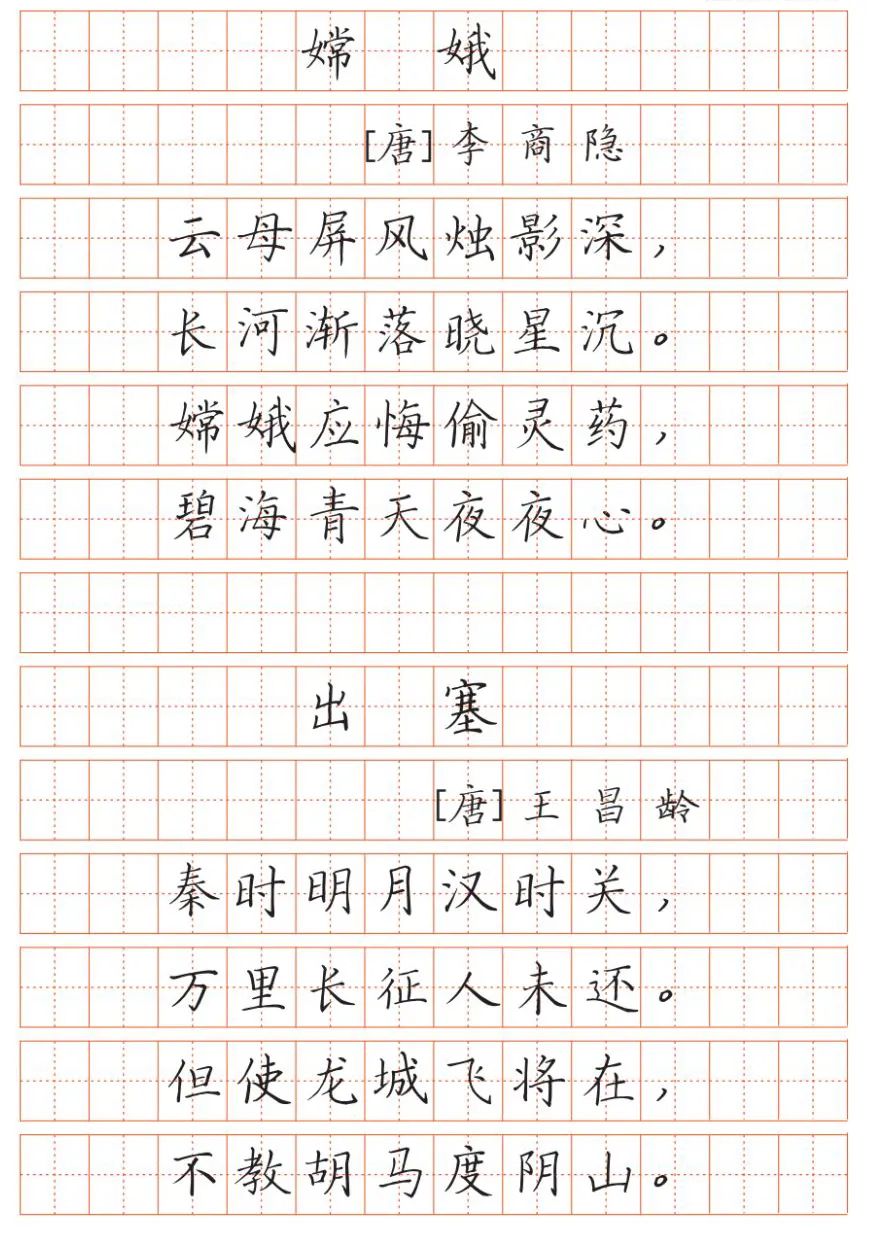 嫦娥
[唐]李商隐
云母屏风烛影深，
长河渐落晓星沉。
嫦娥应悔偷灵药，
碧海青天夜夜心。
出塞
[唐]王昌龄
秦时明月汉时关，
万里长征人未还。
但使龙城飞将在，
不教胡马度阴山。